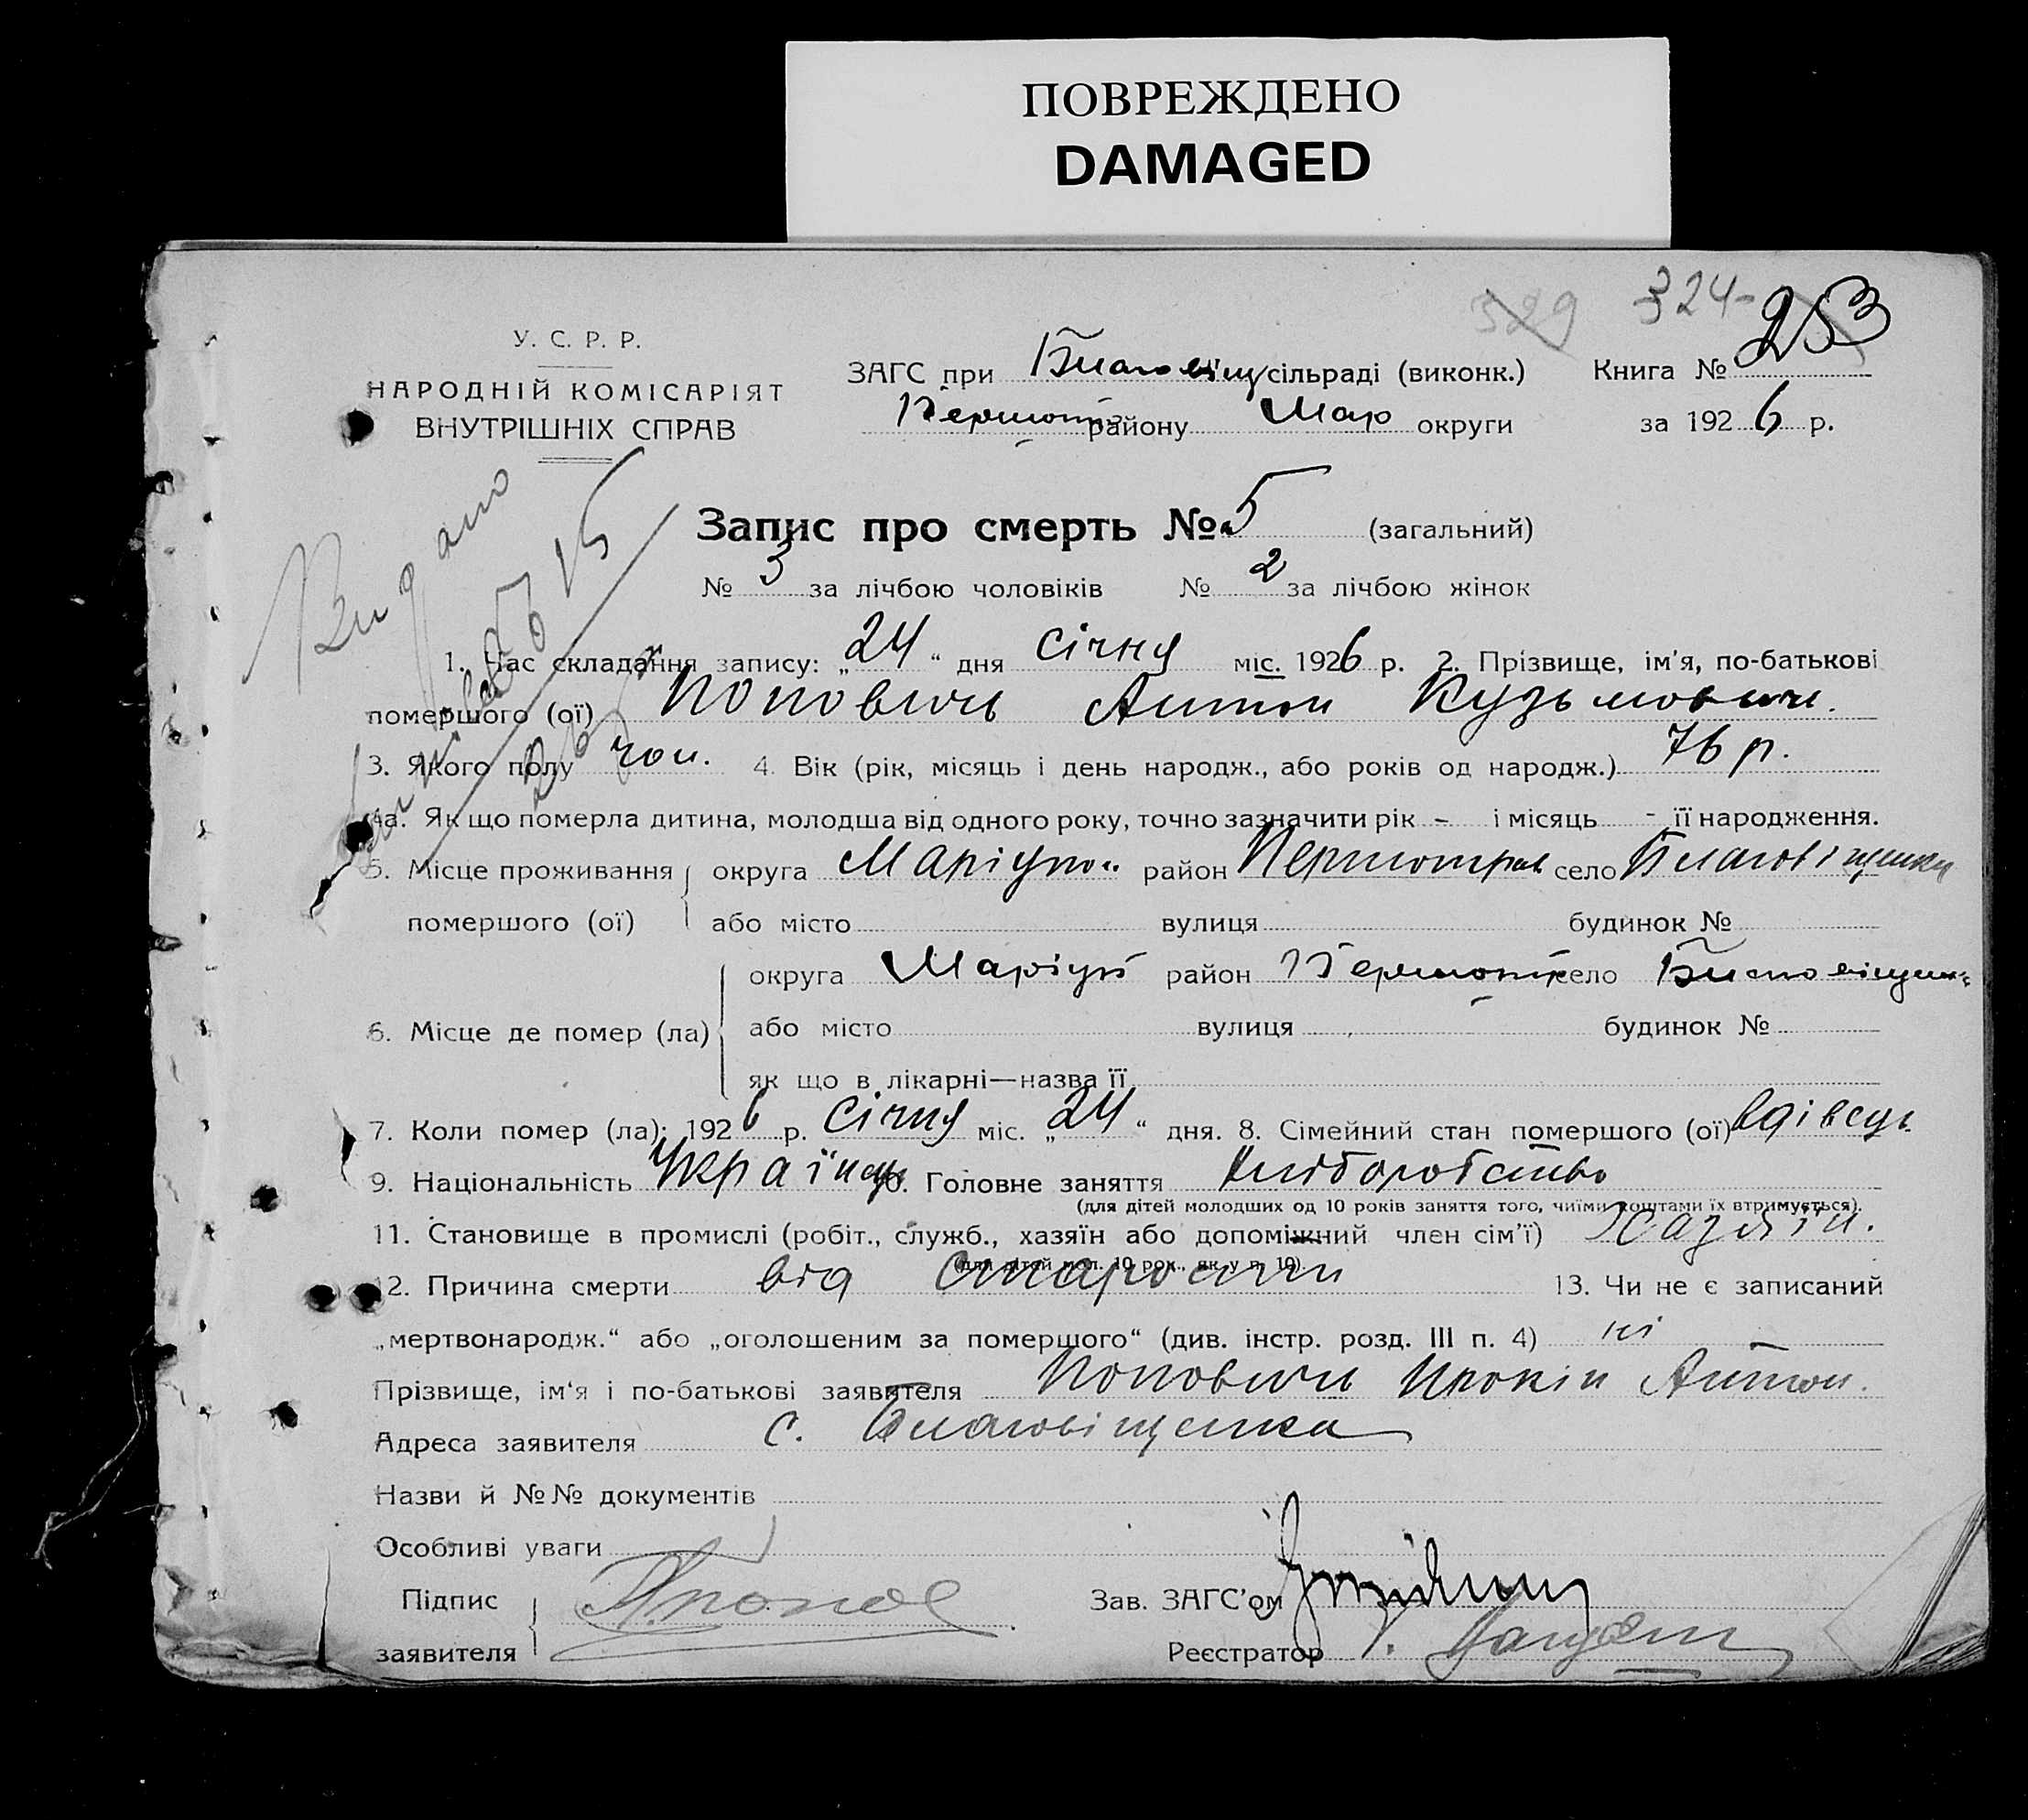 ПОВРЕЖДЕНО
DAMAGED
329 324- 253
У. С. Р. Р.
НАРОДНІЙ КОМІСАРІЯТ
ВНУТРІШНІХ СПРАВ
ЗАГС при Благовіщ сільраді (виконк.) Книга №
Першотр району Мар округи за 1926 р.
Видано
Запис про смерть № 5 (загальний)
№ 3 за лічбою чоловіків № 2 за лічбою жінок
1. Час складання запису: „24“ дня січня міс. 1926 р. 2. Прізвище, ім'я, по-батькові
помершого (ої) Поповичь Антон Кузьмович.
3. Якого полу чол. 4. Вік (рік, місяць і день народж., або років од народж.) 76 р.
4а. Як що померла дитина, молодша від одного року, точно зазначити рік - і місяць - її народження.
5. Місце проживання округа Маріупол район Першотрав село Благовіщенка
помершого (ої) або місто вулиця будинок №
округа Маріуп район Першотр село Благовіщен
6. Місце де помер (ла) або місто вулиця будинок №
як що в лікарні—назва її
7. Коли помер (ла): 1926 р. січня міс. „24“ дня. 8. Сімейний стан помершого (ої) вдівець
9. Національність Українець 10. Головне заняття Хліборобство
(для дітей молодших од 10 років заняття того, чиїми коштами їх втримується).
11. Становище в промислі (робіт., служб., хазяїн або допоміжний член сім'ї) Хазяїн.
(для дітей мол. 10 рок., як у п. 10).
12. Причина смерти від старости 13. Чи не є записаний
„мертвонародж.“ або „оголошеним за помершого“ (див. інстр. розд. III п. 4) ні
Прізвище, ім'я і по-батькові заявителя Поповичь Прокіп Антон.
Адреса заявителя с. Благовіщенка
Назви й №№ документів
Особливі уваги
Підпис
заявителя
Зав. ЗАГС'ом
Реєстратор